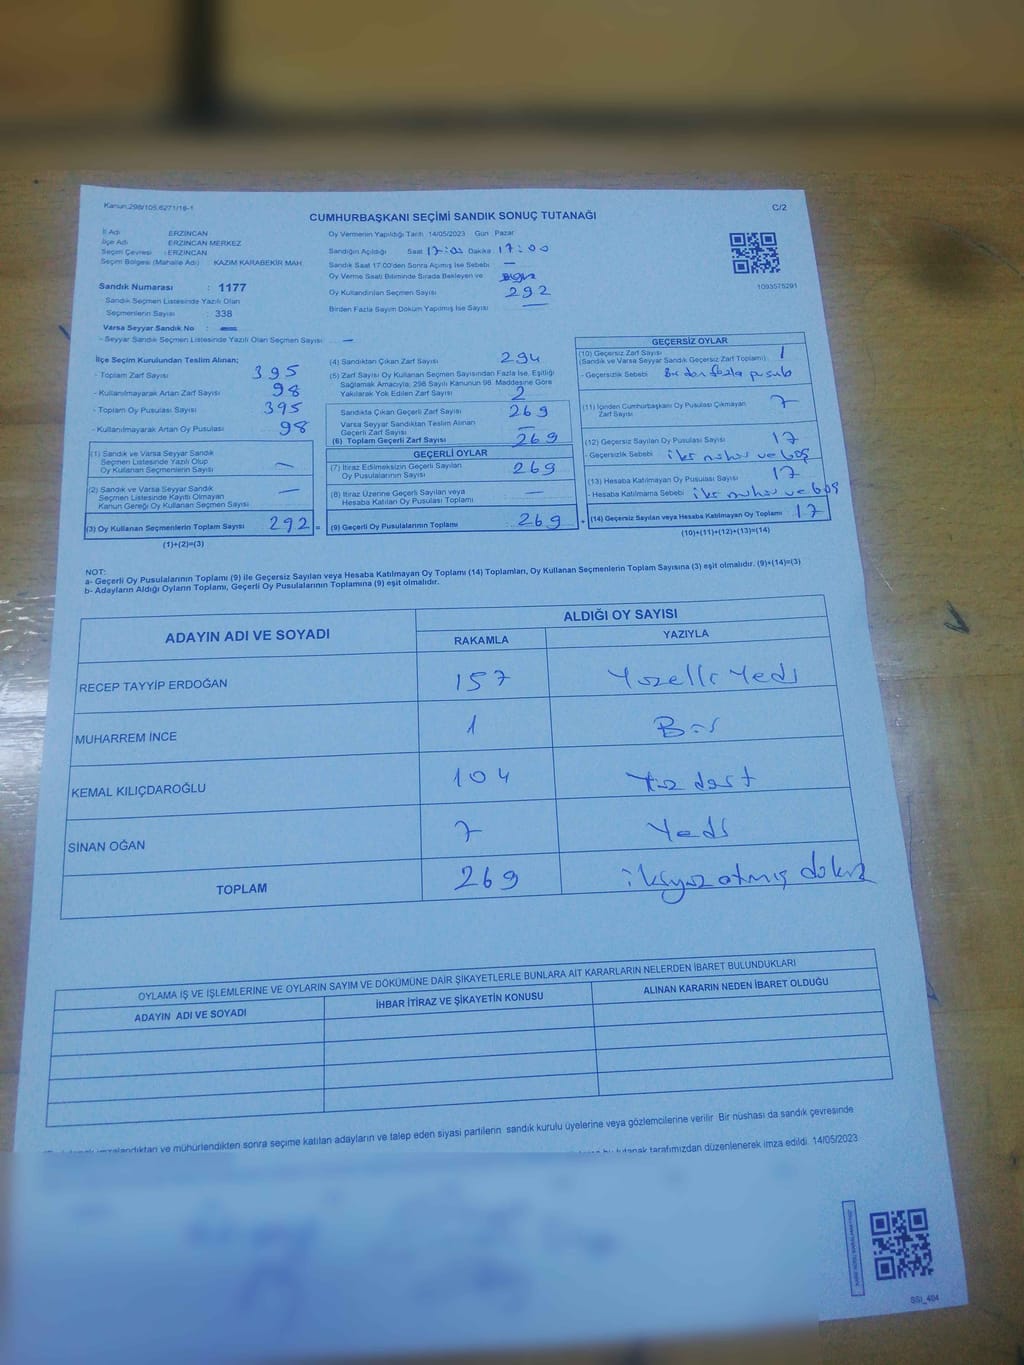 Kanun:298/105,6271/18-1
C/2
CUMHURBAŞKANI SEÇİMİ SANDIK SONUÇ TUTANAĞI
İl Adı ERZİNCAN
İlçe Adı ERZİNCAN MERKEZ
Seçim Çevresi : ERZİNCAN
Seçim Bölgesi (Mahalle Adı) : KAZIM KARABEKİR MAH.
Sandık Numarası : 1177
Sandık Seçmen Listesinde Yazılı Olan
Seçmenlerin Sayısı : 338
Varsa Seyyar Sandık No : —
- Seyyar Sandık Seçmen Listesinde Yazılı Olan Seçmen Sayısı —
Oy Vermenin Yapıldığı Tarih 14/05/2023 Gün Pazar
Sandığın Açıldığı Saat 17:00 Dakika 17:00
Sandık Saat 17:00'den Sonra Açımış İse Sebebi —
Oy Verme Saati Bitiminde Sırada Bekleyen ve
Oy Kullandırılan Seçmen Sayısı 292
Birden Fazla Sayım Döküm Yapılmış İse Sayısı —
1093575291
İlçe Seçim Kurulundan Teslim Alınan;
- Toplam Zarf Sayısı 395
- Kullanılmayarak Artan Zarf Sayısı 98
- Toplam Oy Pusulası Sayısı 395
- Kullanılmayarak Artan Oy Pusulası 98
(1) Sandık ve Varsa Seyyar Sandık
Seçmen Listesinde Yazılı Olup
Oy Kullanan Seçmenlerin Sayısı —
(2) Sandık ve Varsa Seyyar Sandık
Seçmen Listesinde Kayıtlı Olmayan
Kanun Gereği Oy Kullanan Seçmen Sayısı —
(3) Oy Kullanan Seçmenlerin Toplam Sayısı 292 =
(1)+(2)=(3)
(4) Sandıktan Çıkan Zarf Sayısı 294
(5) Zarf Sayısı Oy Kullanan Seçmen Sayısından Fazla İse, Eşitliği
Sağlamak Amacıyla; 298 Sayılı Kanunun 98. Maddesine Göre
Yakılarak Yok Edilen Zarf Sayısı 2
Sandıkta Çıkan Geçerli Zarf Sayısı 269
Varsa Seyyar Sandıktan Teslim Alınan
Geçerli Zarf Sayısı —
(6) Toplam Geçerli Zarf Sayısı 269
GEÇERLİ OYLAR
(7) İtiraz Edilmeksizin Geçerli Sayılan
Oy Pusulalarının Sayısı 269
(8) İtiraz Üzerine Geçerli Sayılan veya
Hesaba Katılan Oy Pusulası Toplamı —
(9) Geçerli Oy Pusulalarının Toplamı 269 +
GEÇERSİZ OYLAR
(10) Geçersiz Zarf Sayısı
(Sandık ve Varsa Seyyar Sandık Geçersiz Zarf Toplamı) 1
- Geçersizlik Sebebi Birden fazla pusula
(11) İçinden Cumhurbaşkanı Oy Pusulası Çıkmayan
Zarf Sayısı 7
(12) Geçersiz Sayılan Oy Pusulası Sayısı 17
- Geçersizlik Sebebi iki mühür ve boş
(13) Hesaba Katılmayan Oy Pusulası Sayısı 17
- Hesaba Katılmama Sebebi iki mühür ve boş
(14) Geçersiz Sayılan veya Hesaba Katılmayan Oy Toplamı 17
(10)+(11)+(12)+(13)=(14)
NOT:
a- Geçerli Oy Pusulalarının Toplamı (9) ile Geçersiz Sayılan veya Hesaba Katılmayan Oy Toplamı (14) Toplamları, Oy Kullanan Seçmenlerin Toplam Sayısına (3) eşit olmalıdır. (9)+(14)=(3)
b- Adayların Aldığı Oyların Toplamı, Geçerli Oy Pusulalarının Toplamına (9) eşit olmalıdır.
ADAYIN ADI VE SOYADI ALDIĞI OY SAYISI
RAKAMLA YAZIYLA
RECEP TAYYİP ERDOĞAN 157 Yüzelli Yedi
MUHARREM İNCE 1 Bir
KEMAL KILIÇDAROĞLU 104 Yüz dört
SİNAN OĞAN 7 Yedi
TOPLAM 269 ikiyüz atmış dokuz
OYLAMA İŞ VE İŞLEMLERİNE VE OYLARIN SAYIM VE DÖKÜMÜNE DAİR ŞİKAYETLERLE BUNLARA AİT KARARLARIN NELERDEN İBARET BULUNDUKLARI
ADAYIN ADI VE SOYADI İHBAR İTİRAZ VE ŞİKAYETİN KONUSU ALINAN KARARIN NEDEN İBARET OLDUĞU
imzalandıktan ve mühürlendikten sonra seçime katılan adayların ve talep eden siyasi partilerin sandık kurulu üyelerine veya gözlemcilerine verilir Bir nüshası da sandık çevresinde
bu tutanak tarafımızdan düzenlenerek imza edildi. 14/05/2023
SSI_404